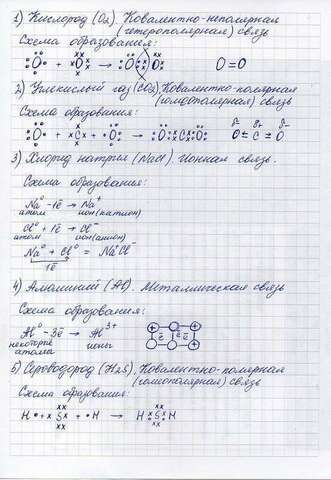 1) Кислород (O₂) Ковалентно-неполярная
(гетерополярная) связь
Схема образования:
O + O → O O O=O
2) Углекислый газ (CO₂), Ковалентно-полярная
(гомополярная) связь
Схема образования:
O + C + O → O C O O = C = O
3) Хлорид натрия (NaCl). Ионная связь.
Схема образования:
Na⁰ - 1ē → Na⁺
атом ион (катион)
Cl⁰ + 1ē → Cl⁻
атом ион (анион)
Na⁰ + Cl⁰ = Na⁺Cl⁻
1ē
4) Алюминий (Al). Металлическая связь
Схема образования:
Al⁰ - 3ē → Al³⁺
некоторые ионы
атомы
5) Сероводород (H₂S), Ковалентно-полярная
(гомополярная) связь
Схема образования:
H + S + H → H S H